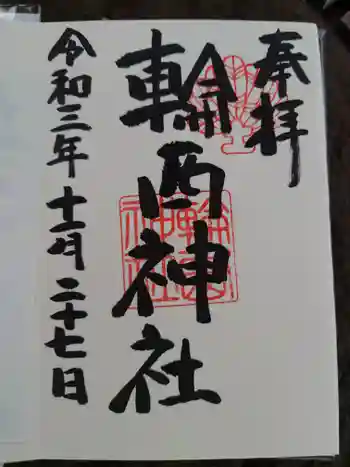 奉拝
輪西神社
令和三年十一月二十七日
輪西神社